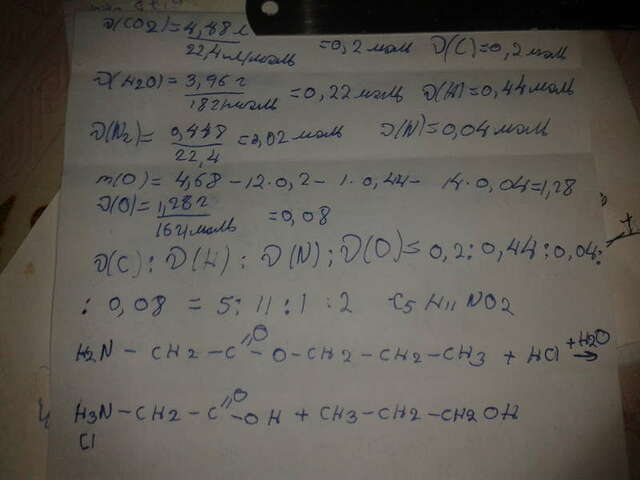 ν(CO2)=4,48 л/22,4 л/моль =0,2 моль ν(C)=0,2 моль
ν(H2O)=3,96 г/18 г/моль =0,22 моль ν(H)=0,44 моль
ν(N2)=0,448/22,4=0,02 моль ν(N)=0,04 моль
m(O)=4,68-12·0,2-1·0,44-14·0,04=1,28
ν(O)=1,28 г/16 г/моль =0,08
ν(C):ν(H):ν(N):ν(O)=0,2:0,44:0,04:
:0,08=5:11:1:2 C5H11NO2
H2N-CH2-C=O-O-CH2-CH2-CH3+HCl +H2O→
H3N-CH2-C=O-OH+CH3-CH2-CH2OH
Cl